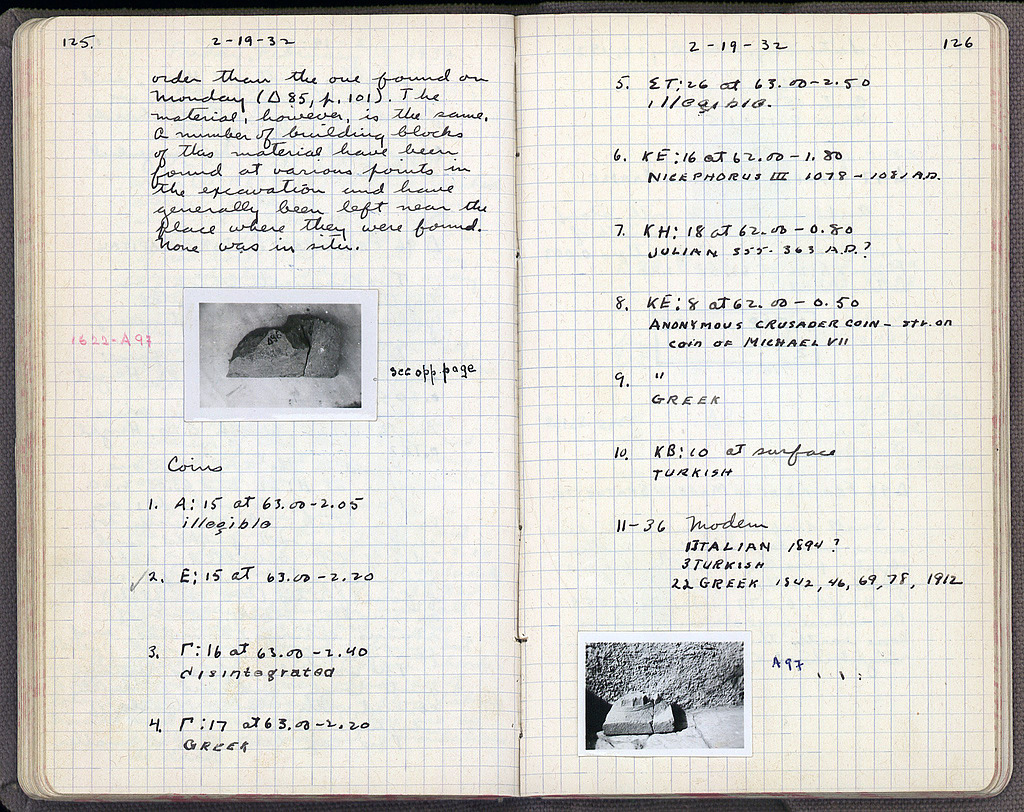 125.
2-19-32
order than the one found on
Monday (Δ 85, p. 101). The
material, however, is the same.
A number of building blocks
of this material have been
found at various points in
the excavation and have
generally been left near the
place where they were found.
None was in situ.
1622-A97
see opp. page
Coins
1. A:15 at 63.00-2.05
illegible
✓2. E:15 at 63.00-2.20
3. Γ:16 at 63.00-2.40
disintegrated
4. Γ:17 at 63.00-2.20
GREEK
2-19-32
126
5. ΣΤ:26 at 63.00-2.50
illegible.
6. KE:16 at 62.00-1.80
NICEPHORUS III 1078-1081 A.D.
7. KH:18 at 62.00-0.80
JULIAN 355-363 A.D.?
8. KE:8 at 62.00-0.50
ANONYMOUS CRUSADER COIN - str. on
coin of MICHAEL VII
9. "
GREEK
10. KB:10 at surface
TURKISH
11-36 Modern
1 ITALIAN 1894?
3 TURKISH
22 GREEK 1842, 46, 69, 78, 1912
A97